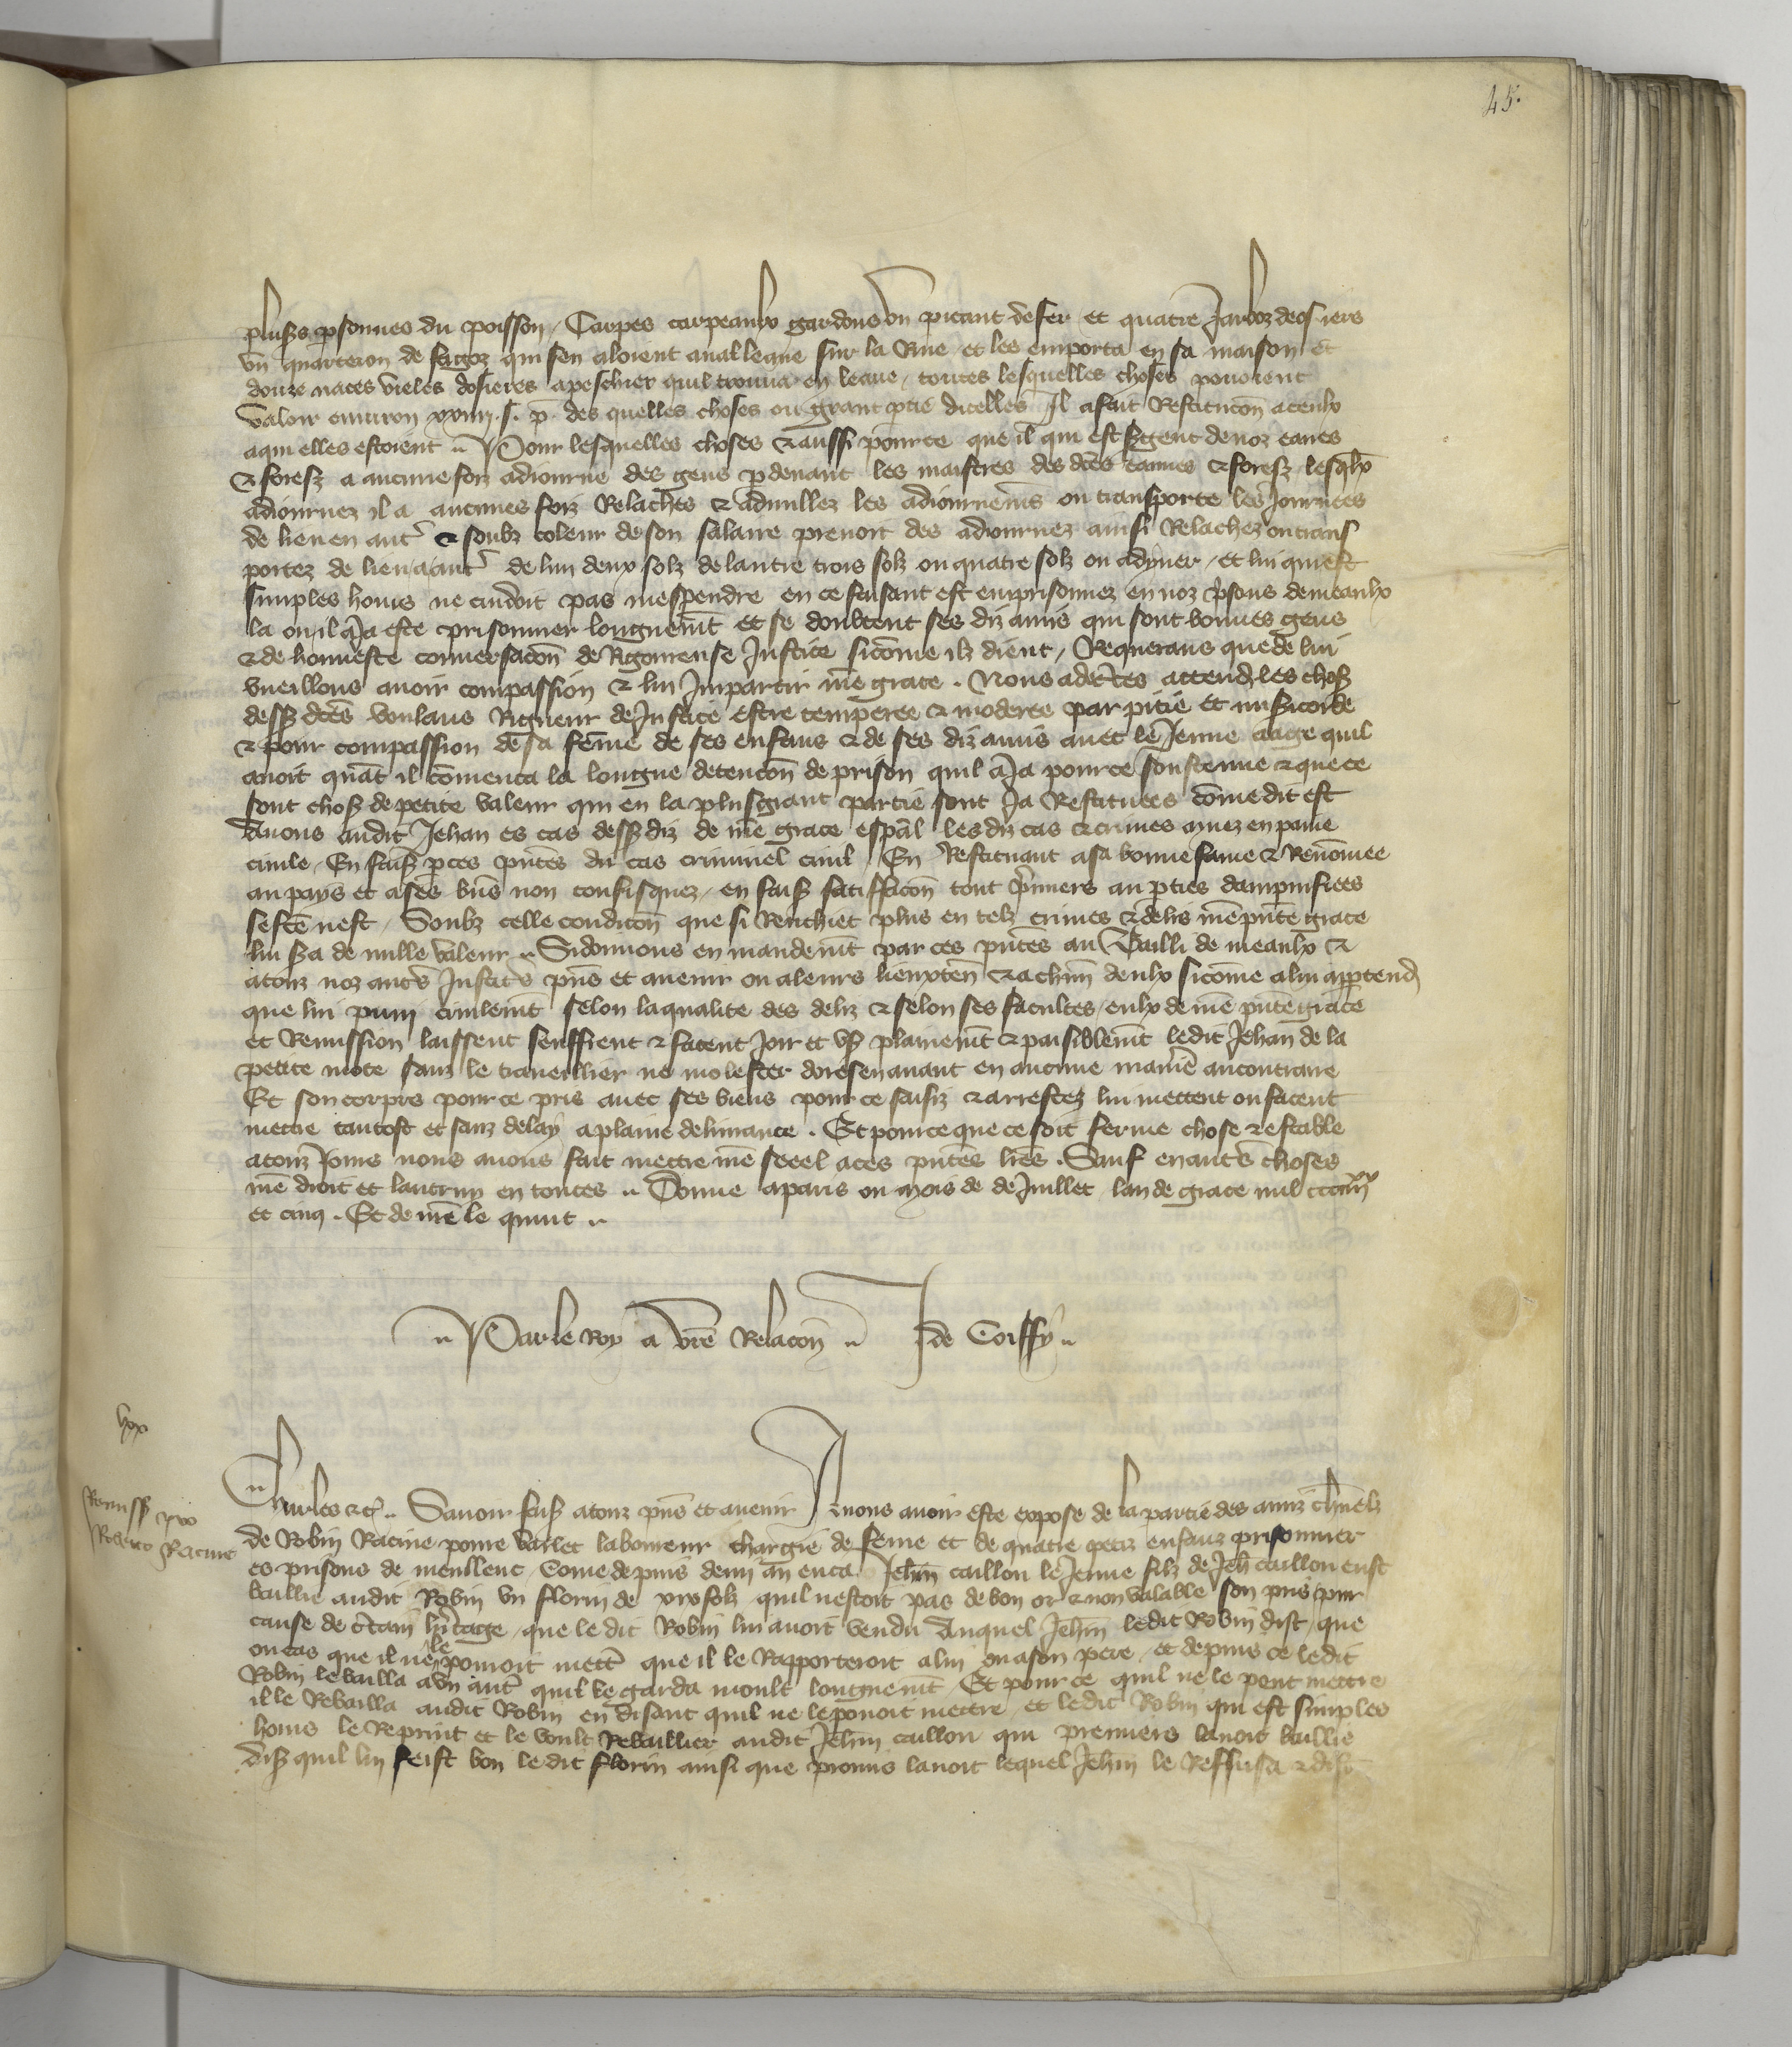 45.
plus&s psonnes du poisson, Carpes carpeaulx gardons vn picant de fer et quatre Jarboz dosiers
vn quarteron de fagoz qui sen aloient aual leaue sur la Riue et les emporta en sa maison et
douze naces vieles dosieres apeschier quil trouua en leaue, toutes lesquelles choses pouoient
valoir enuiron xxiiij. s. p. des quelles choses ou grant ptie dicelles Il afait Restitucon aceulx
aqui elles estoient Pour lesquelles choses & aussi pource que il qui est sgent de noz eaues
& forestz a aucune foiz adiourne des gens pdeuant les maistres des dces eaues & forestz lesqlx
adiournez il a aucunes foiz Relaches & adnullez les adiournemens ou transporte les Journees
de lieu en autre & soubz coleur de son salaire prenoit des adiournez ainsi Relachez ou trans
portez de lieu aautre de lun deux solz de lautre trois solz ou quatre solz ou adyner, et lui qui est
simples homs ne cuidoit pas mesprendre en ce faisant est emprisonnez en noz prisons de meaulx
la ou il a Ja este prisonnier longuemt et se doubtent ses diz amis qui sont bonnes gens
& de honneste conuersacon de Rigoreuse Justice sicome ilz dient, Requerans que de lui
vueillons auoir compassion & lui Impartir nre grace. Nous adcertes attend les choses
dessus dces voulans Rigueur de Justice estre temperee & moderee par pitie et misicorde
& pour compassion de sa feme de ses enfans & de ses diz amis auec le Jeune aage quil
auoit quat il comenca la longue detencon de prison quil a Ja pource soustenue & que ce
sont choses de petite valeur qui en la plusgrant partie sont Ja Restituees come dit est
Auons audit Jehan es cas dessus diz de nre grace espal les diz cas & crimes muez en paine
ciuile, En faisant pces pntes du cas criminel ciuil, En Restituant asa bonne fame & Renommee
au pays et ases biens non confisquez, en faisant satisffacon tout premiers au pties dampnifiees
se fce nest, Soubz celle condicon que si Renchiet plus en telz crimes & deliz nre pnte grace
lui sera de nulle valeur Sidonnons en mandemt par ces pntes au Bailli de meaulx &
atouz noz autres Justiciers pns et auenir ou aleurs lieuxten & achun deulx sicome alui appartend
que lui puni ciuilemt selon laqualite des deliz & selon ses facultes, eulx de nre pnte grace
et Remission laissent seuffrent & facent Joir et vser plainemt & paisiblemt ledit Jehan de la
petite mote sanz le trauellier ne molester doresenauant en aucune maniere aucontraire
Et son corps pource pris auec ses biens pour ce saisiz & arrestez lui mettent ou facent
mettre tantost et sanz delay aplaine deliurance. Et pource que ce soit ferme chose & estable
atouz Jours nous auons fait mettre nre seeel aces pntes lres. Sauf en autres choses
nre droit et lautruy en toutes Donne aparis ou mois de de Juillet lan de grace mil ccc iiii xx
et cinq. Et de nre le quint
Par le Roy a vre Relacon J de Coiffy
hox
Remissio pro
Roberto Racine
Charles &c. Sauoir fais atouz pns et auenir A nous auoir este expose de la partie des amiz charnelz
de Robin Racine poure varlet laboureur chargie de feme et de quatre petiz enfanz prisonnier
es prisons de meullenc Come depuis demi an enca Jehin caillou le Jeune filz de Jeh caillou eust
baillie audit Robin vn florin de xvj solz quil nestoit pas de bon or & non valable son pris pour
cause de certain heritage que le dit Robin lui auoit vendu Auquel Jehin ledit Robin dist, que
ou cas que il ne le pourroit mettre que il le Rapporteroit alui ou ason pere, et depuis ce ledit
Robin le bailla a vn autre quil le garda moult longuemt Et pour ce quil ne le peut mettre
il le Rebailla audit Robin en disant quil ne le pouoit mettre, et ledit Robin qui est simples
homs le Reprint et le voult Rebaillier audit Jehin caillou qui premiers lauoit baillie
disant quil lui feist bon ledit florin ainsi que promis lauoit lequel Jehin le Reffusa & dist